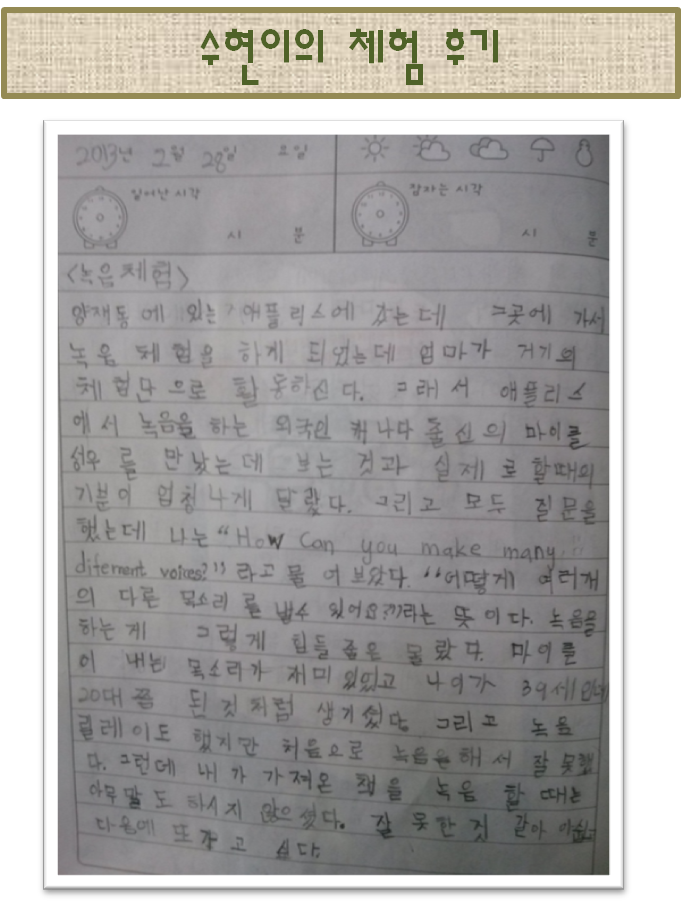 수현이의 체험 후기
2013년 2월 28일 요일
일어난 시각 잠자는 시각
시 분 시 분
<녹음체험>
양재동에 있는 애플리스에 갔는데 그곳에 가서
녹음 체험을 하게 되었는데 엄마가 거기의
체험단으로 활동하신다. 그래서 애플리스
에서 녹음을 하는 외국인 캐나다 출신의 마이클
성우를 만났는데 보는 것과 실제로 할때의
기분이 엄청나게 달랐다. 그리고 모두 질문을
했는데 나는 "How can you make many
diferrent voices?"라고 물어보았다. "어떻게 여러개
의 다른 목소리를 낼수 있어요?"라는 뜻이다. 녹음을
하는게 그렇게 힘들 줄은 몰랐다. 마이클
이 내는 목소리가 재미있었고 나이가 39세인데
20대쯤 된것처럼 생기셨다. 그리고 녹음
릴레이도 했지만 처음으로 녹음을해서 잘 못했
다. 그런데 내가 가져온 책을 녹음 할때는
아무말도 하시지 않으셨다. 잘 못한 것 같아 아쉽고
다음에 또가고 싶다